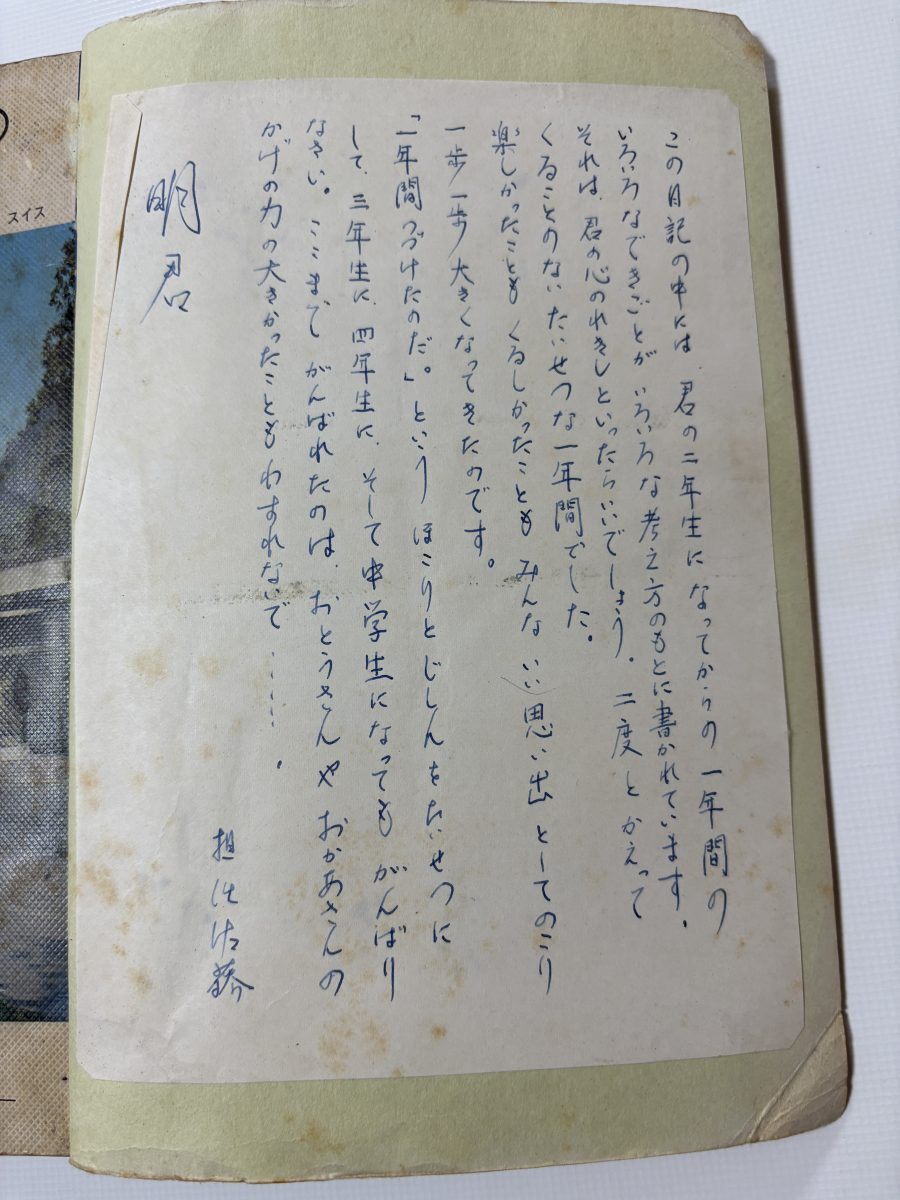 この日記の中には、君の二年生になってからの一年間の
いろいろなできごとがいろいろな考え方のもとに書かれています。
それは、君の心のれきしといったらいいでしょう。二度とかえって
くることのないたいせつな一年間でした。
楽しかったこともくるしかったこともみんないい思い出としてのこり
一歩一歩大きくなってきたのです。
「一年間つづけたのだ。」というほこりとじしんをたいせつに
して、三年生に、四年生に、そして中学生になってもがんばり
なさい。ここまでがんばれたのは、おとうさんやおかあさんの
かげの力の大きかったこともわすれないで……。
担任佐藤
明君
スイス